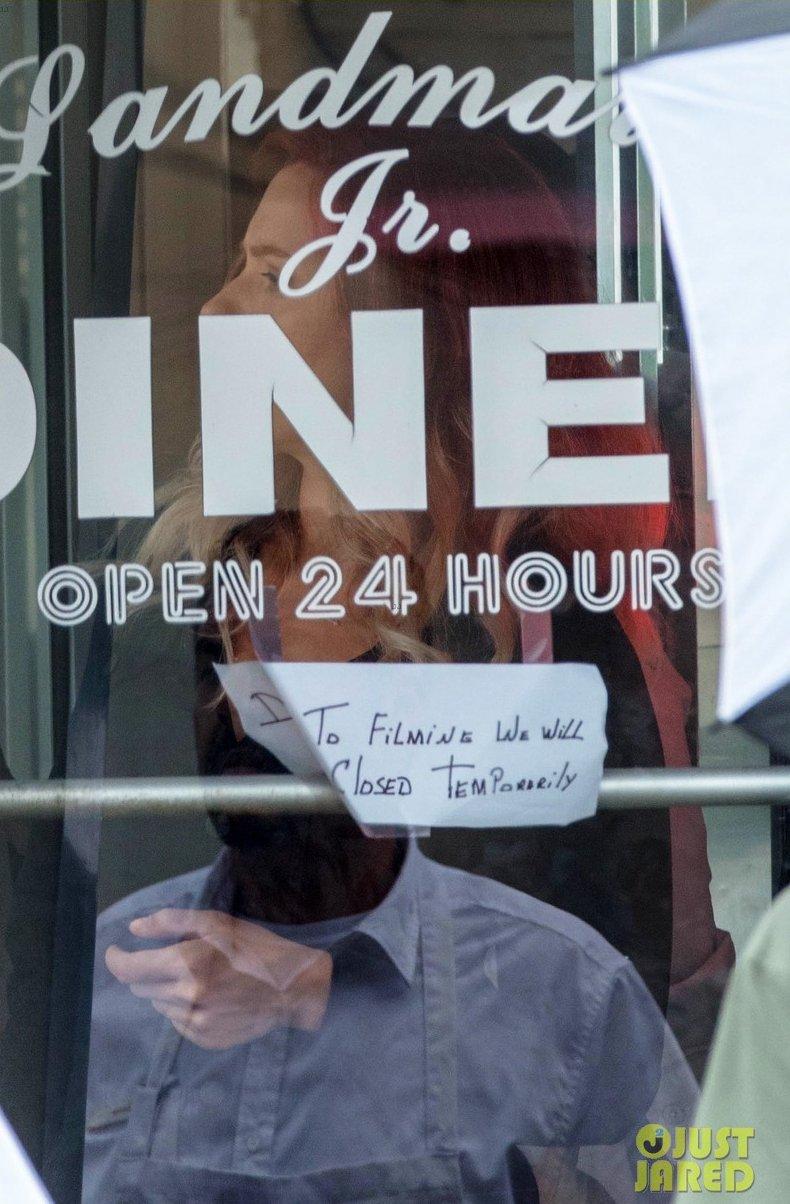 Landma
Jr.
DINE
OPEN 24 HOURS
To FilMiNG We Will
Closed TEMPorarily
J2 JUST
JARED